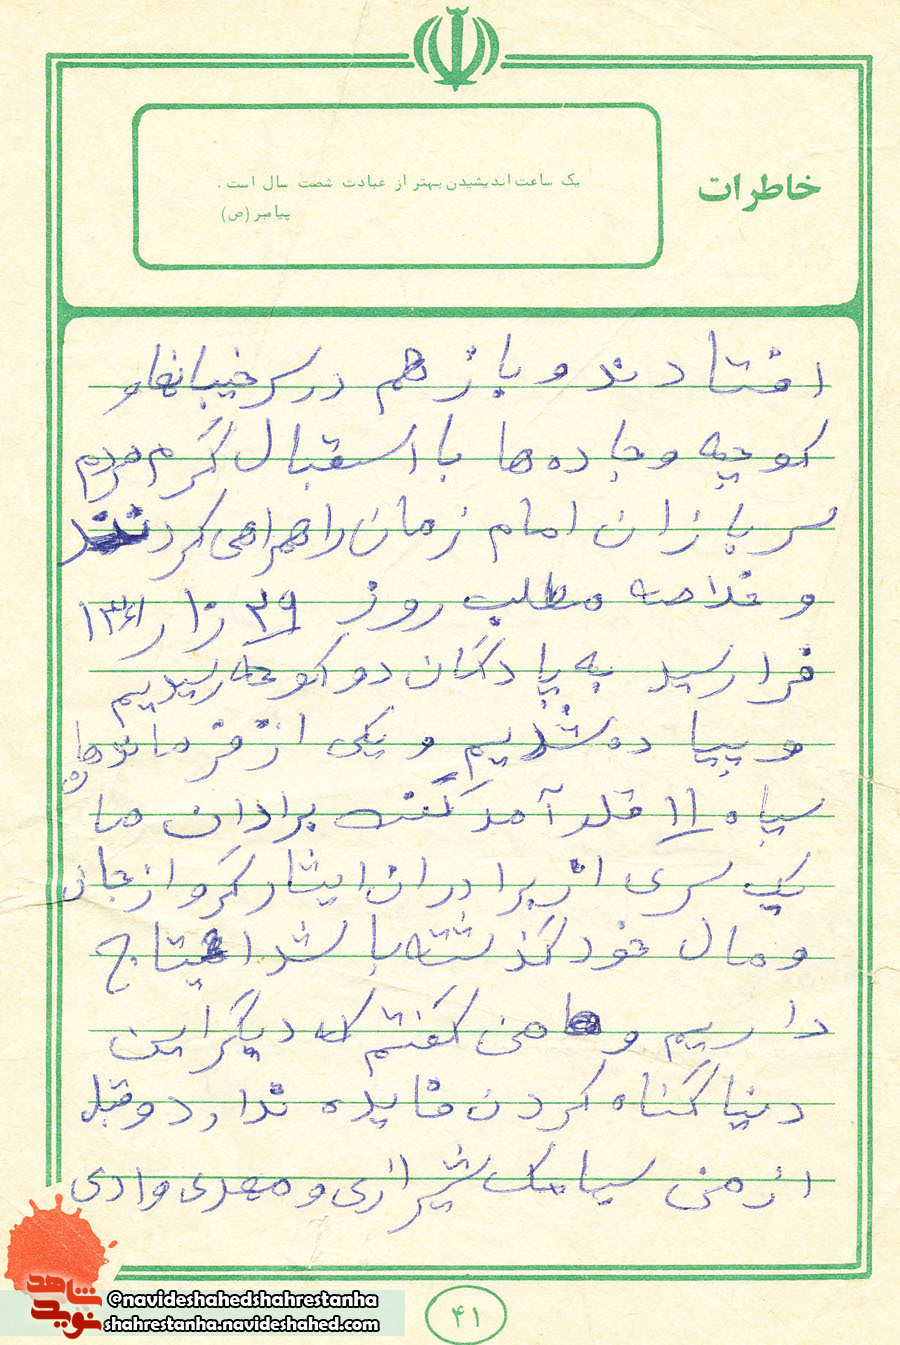 خاطرات
یک ساعت اندیشیدن بهتر از عبادت شصت سال است .
پیامبر (ص)
افتادند و باز هم در سر خیبانها و
کوچه و جاده ها با استقبال گرم مردم
سربازان امام زمان را همراهی کردند
و خلاصه مطلب روز ۲۹ ر ۱۰ ر ۱۳۶۱
فرا رسید به پادگان دو کوهه رسیدیم
و پیاده شدیم و یکی از فرماندهان
سپاه ۱۱ قدر آمد گفت برادان ما
یک سری از برادران ایثارگر و از جان
و مال خود گذشته باشد احتیاج
داریم و من گفتم که دیگر این
دنیا گناه کردن فایده ندارد و قبل
از من سیامک شیرازی و مهدی وادی
۴۱
نوید شاهد
@navideshahedshahrestanha
shahrestanha.navideshahed.com